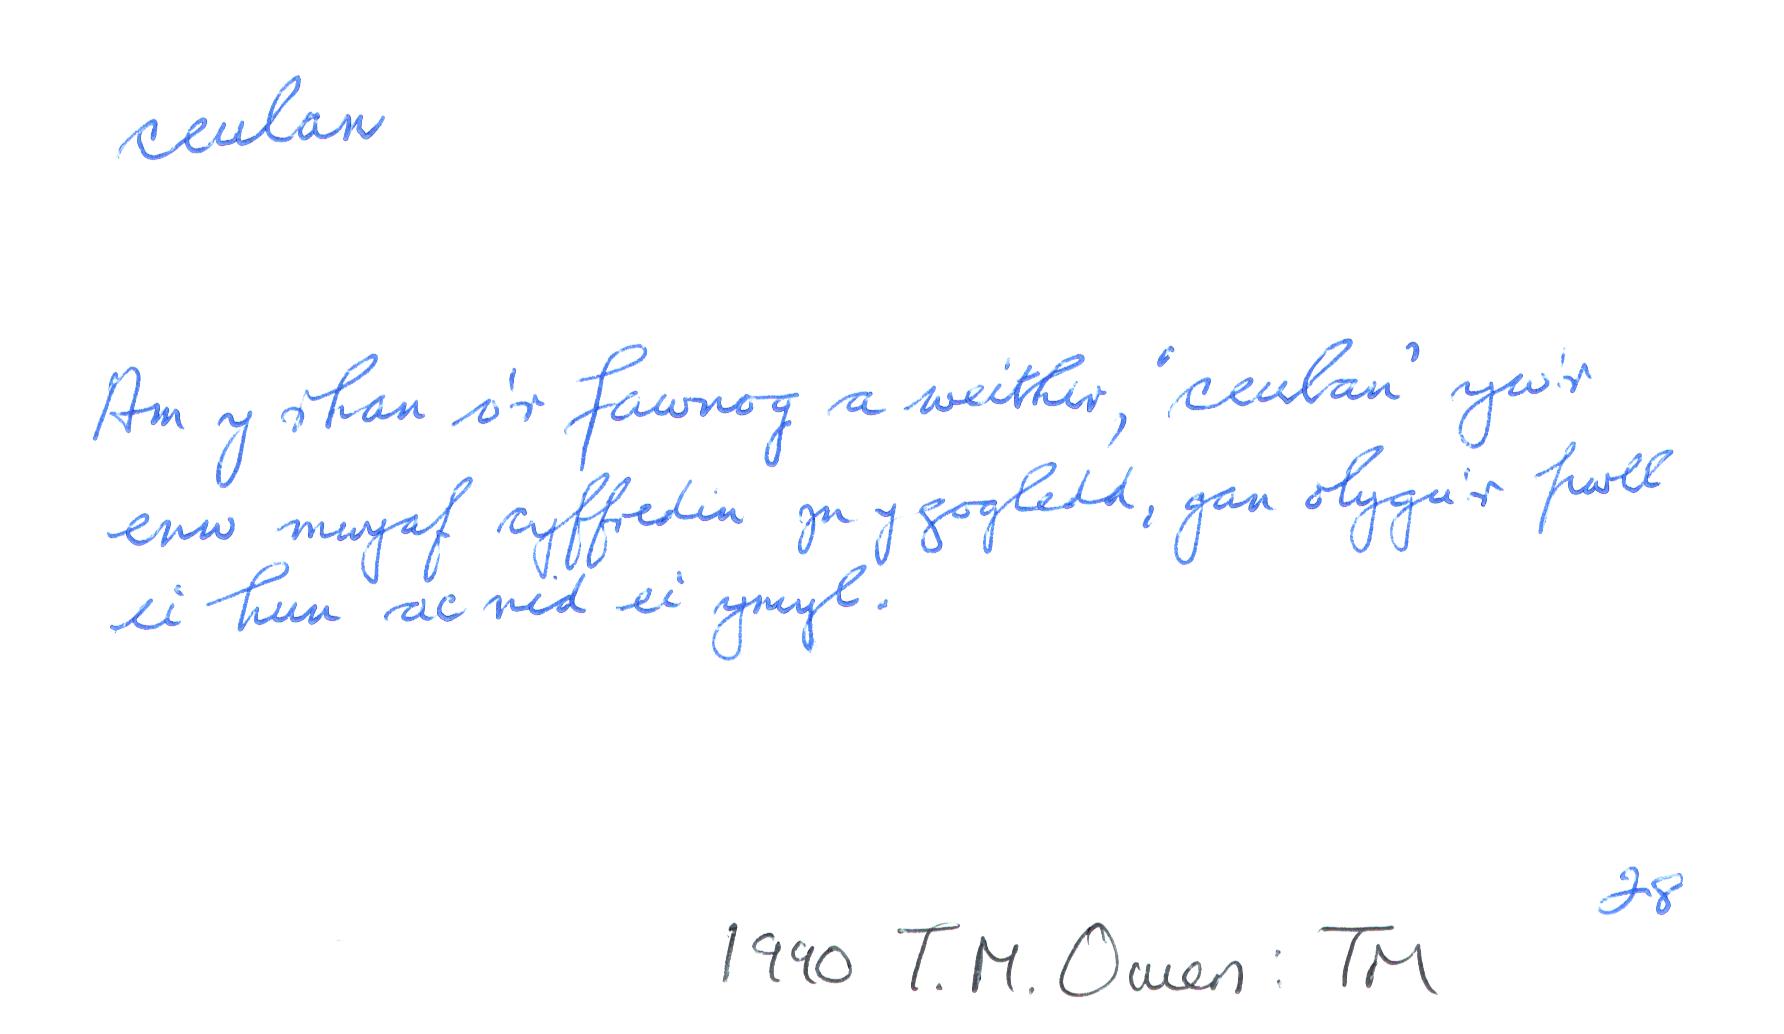 ceulan
Am y rhan o'r fawnog a weithir, 'ceulan' yw'r
enw mwyaf cyffredin yn y gogledd, gan olygu'r pwll
ei hun ac nid ei ymyl.
28
1990 T.M. Owen: TM